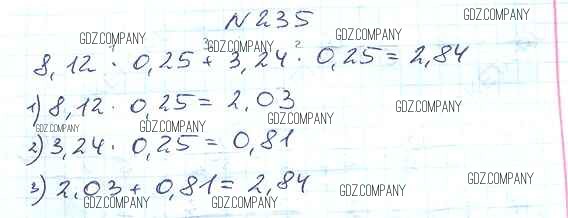 № 235
GDZ.COMPANY
GDZ.COMPANY
GDZ.COMPANY
GDZ.COMPANY
1 3 2
8,12 · 0,25 + 3,24 · 0,25 = 2,84
GDZ.COMPANY
GDZ.COMPANY
1) 8,12 · 0,25 = 2,03
GDZ.COMPANY
GDZ.COMPANY
GDZ.COMPANY
GDZ.COMPANY
2) 3,24 · 0,25 = 0,81
3) 2,03 + 0,81 = 2,84
GDZ.COMPANY
GDZ.COMPANY
GDZ.COMPANY
GDZ.COMPANY